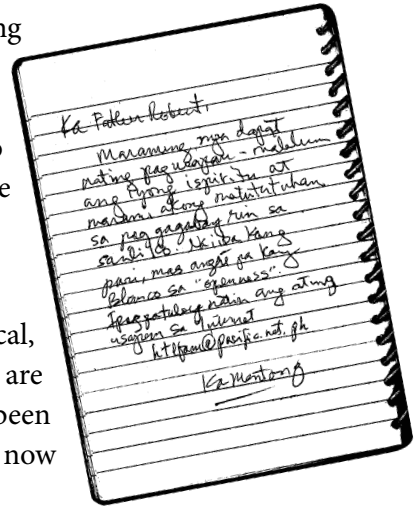 ng
o
e
cal,
are
been
now
Ka Father Robert,
Maraming mga dapat
nating pag usapan - malalim
ang iyong ispiritu at
marami akong matututuhan
sa pag gagabay run sa
sarili ko. Naiiba kang
pari, mas angat pa kay
Blanco sa "openness".
Ipagpatuloy natin ang ating
usapan sa Internet
htlfam@pacific.net.ph
Ka Mentong